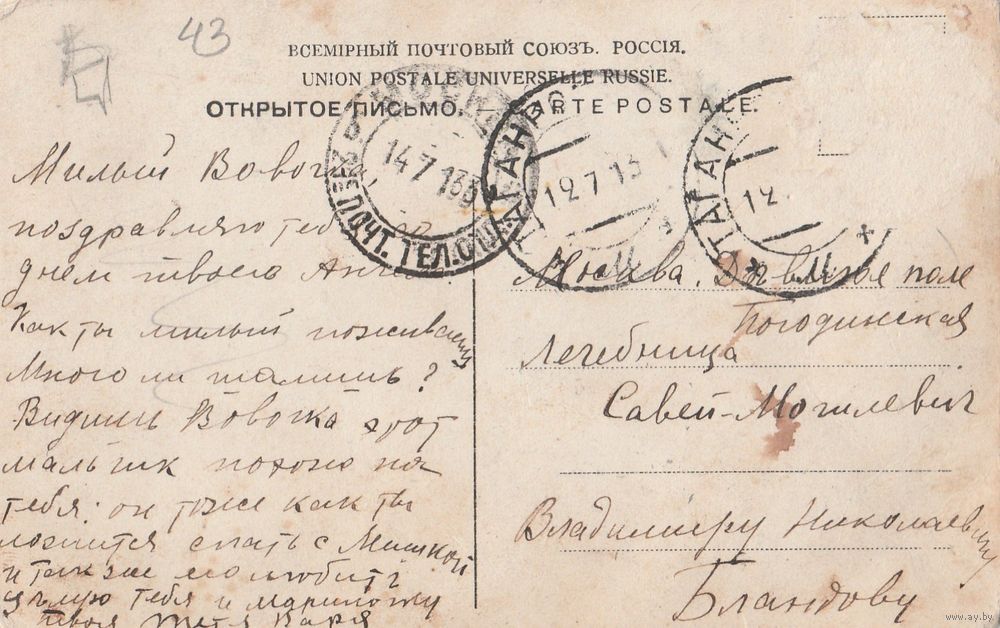 43
ВСЕМІРНЫЙ ПОЧТОВЫЙ СОЮЗЪ. РОССІЯ.
UNION POSTALE UNIVERSELLE RUSSIE.
ОТКРЫТОЕ ПИСЬМО. — CARTE POSTALE.
МОСКВА
14 7 13
ПОЧТ. ТЕЛ.
ТАГАНРО
12 7 13
ТАГАН
12
Милый Вовочка,
поздравляю тебя со
днем твоего Анг
Как ты милый поживаешь
Много ли шалишь?
Видишь Вовочка этот
мальчик похож на
тебя: он тоже как ты
ложится спать с Мишкой
и так же любитъ
цѣлую тебя и Мариночку
твоя тетя Варя
Москва. Дѣвичье поле
Погодинская
Лечебница
Савей-Могилевич
Владимиру Николаевичу
Бландову
www.ay.by